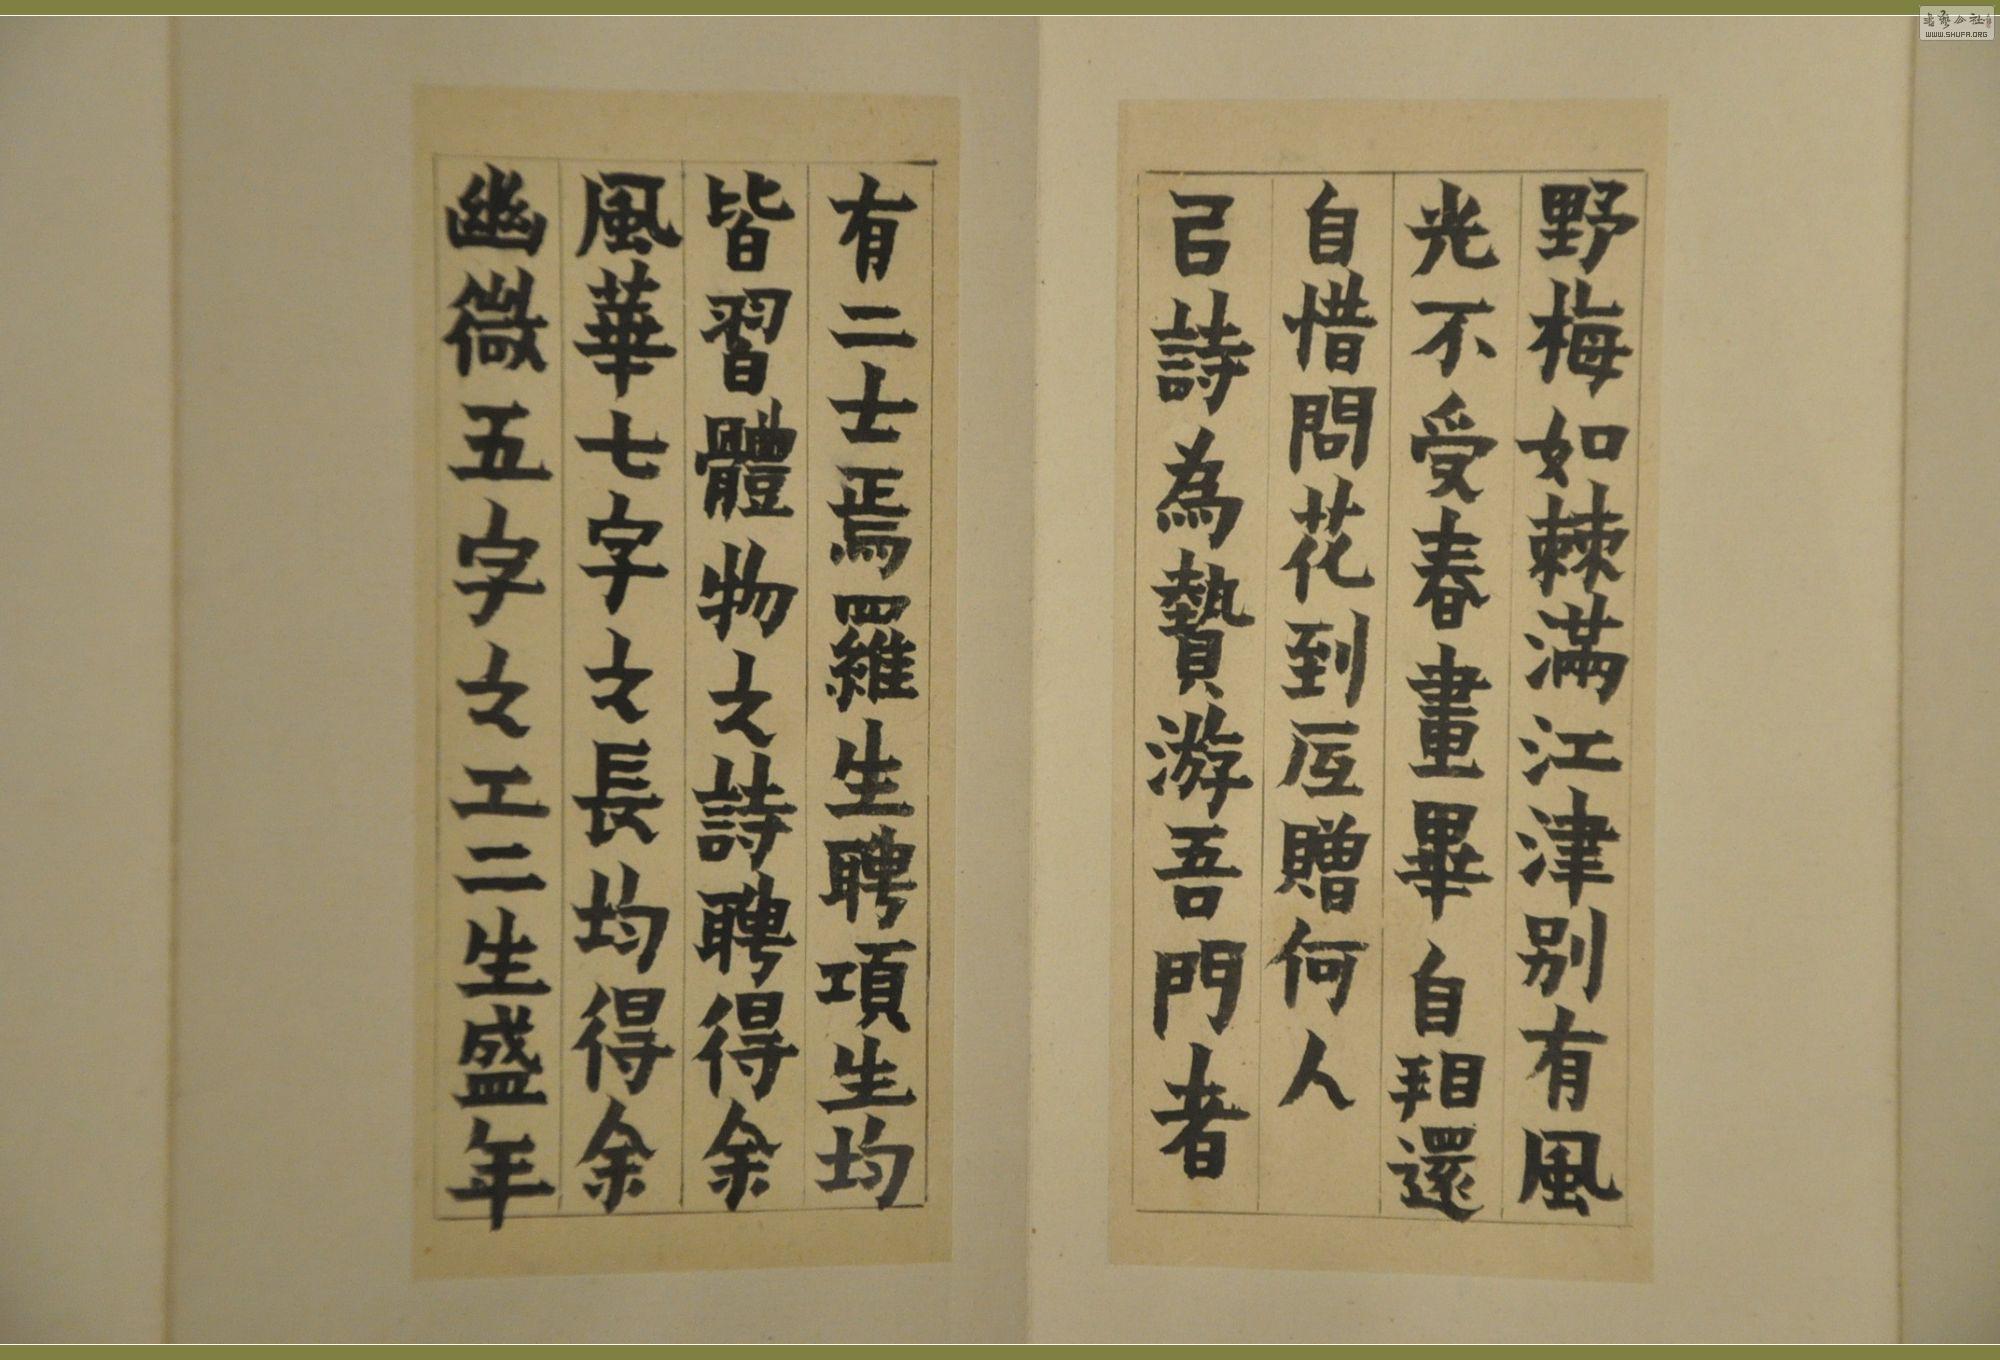 野梅如棘滿江津别有風
光不受春畫畢自相還
自惜問花到底贈何人
㠯詩為贄游吾門者
有二士焉羅生聘項生均
皆習體物之詩聘得余
風華七字之長均得余
幽微五字之工二生盛年
WWW.SHUFA.ORG